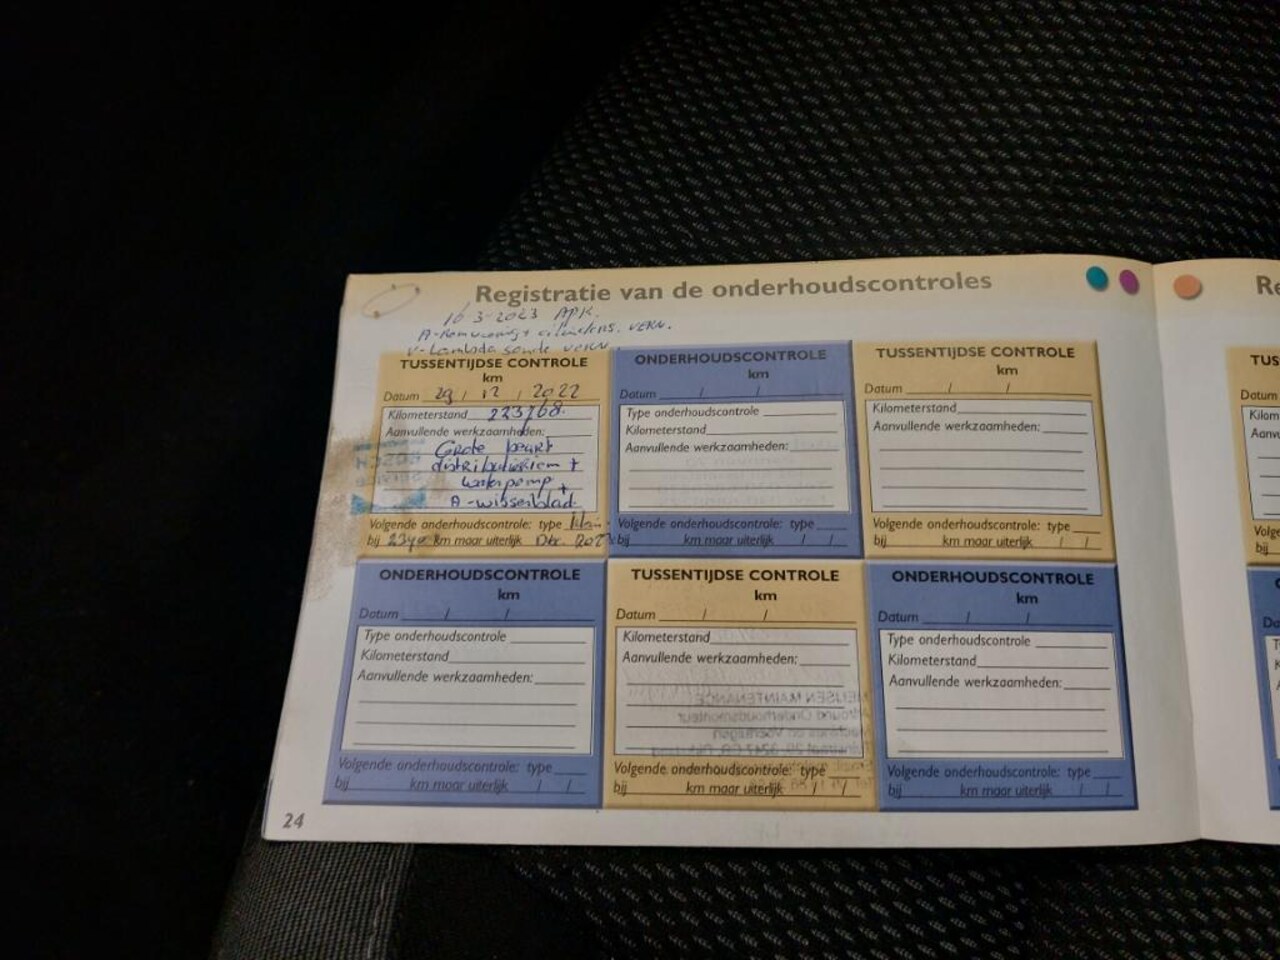 Registratie van de onderhoudscontroles
Re
16 3-2023 APK.
A-Remvoering + cilinders. VERN.
V-Lambda sonde VERN.
TUSSENTIJDSE CONTROLE
km
Datum 29 / 12 / 2022
Kilometerstand 223768.
Aanvullende werkzaamheden:
Grote beurt
distributieriem +
waterpomp +
A-wisserblad.
Volgende onderhoudscontrole: type
bij km maar uiterlijk Dec.
ONDERHOUDSCONTROLE
km
Datum / /
Type onderhoudscontrole
Kilometerstand
Aanvullende werkzaamheden:
Volgende onderhoudscontrole: type
bij km maar uiterlijk / /
TUSSENTIJDSE CONTROLE
km
Datum / /
Kilometerstand
Aanvullende werkzaamheden:
Volgende onderhoudscontrole: type
bij km maar uiterlijk / /
TUS
Datum
Kilom
Aanv
Volge
bij
ONDERHOUDSCONTROLE
km
Datum / /
Type onderhoudscontrole
Kilometerstand
Aanvullende werkzaamheden:
Volgende onderhoudscontrole: type
bij km maar uiterlijk / /
TUSSENTIJDSE CONTROLE
km
Datum / /
Kilometerstand
Aanvullende werkzaamheden:
Volgende onderhoudscontrole: type
bij km maar uiterlijk / /
ONDERHOUDSCONTROLE
km
Datum / /
Type onderhoudscontrole
Kilometerstand
Aanvullende werkzaamheden:
Volgende onderhoudscontrole: type
bij km maar uiterlijk / /
24